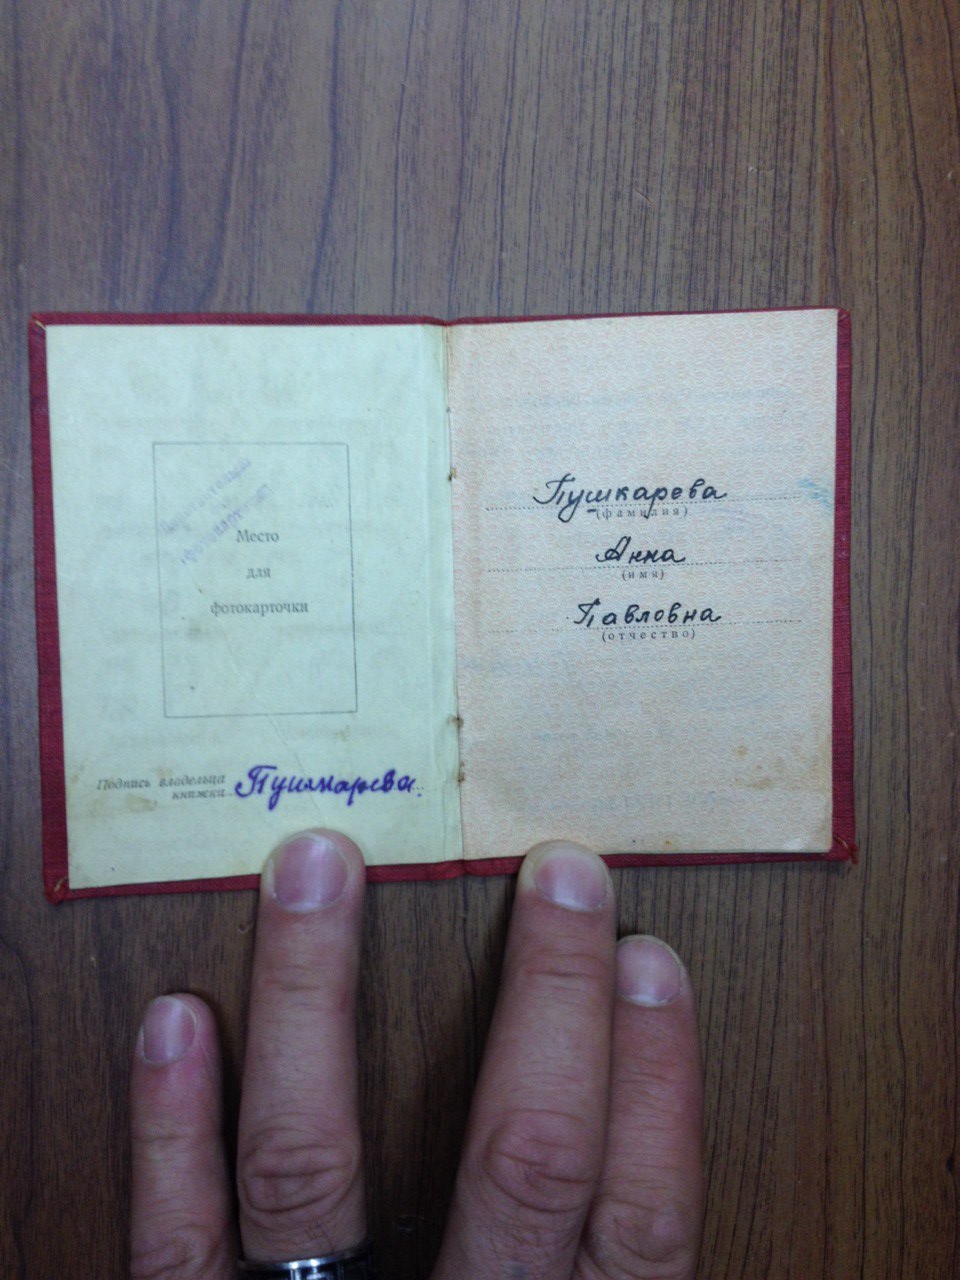 Место
для
фотокарточки
Подпись владельца
книжки Пушкарева.
Пушкарева
(фамилия)
Анна
(имя)
Павловна
(отчество)